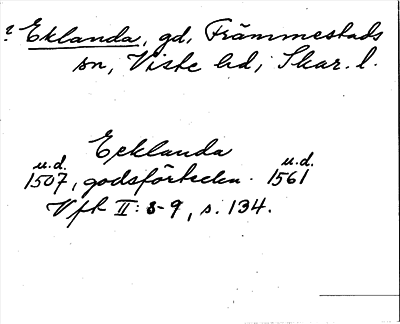 ? Eklanda, gd, Främmestads
sn, Viste hd, Skar. l.
Ecklanda
u.d. u.d.
1507, godsförteckn. 1561
Vft II: 8-9, s. 134.